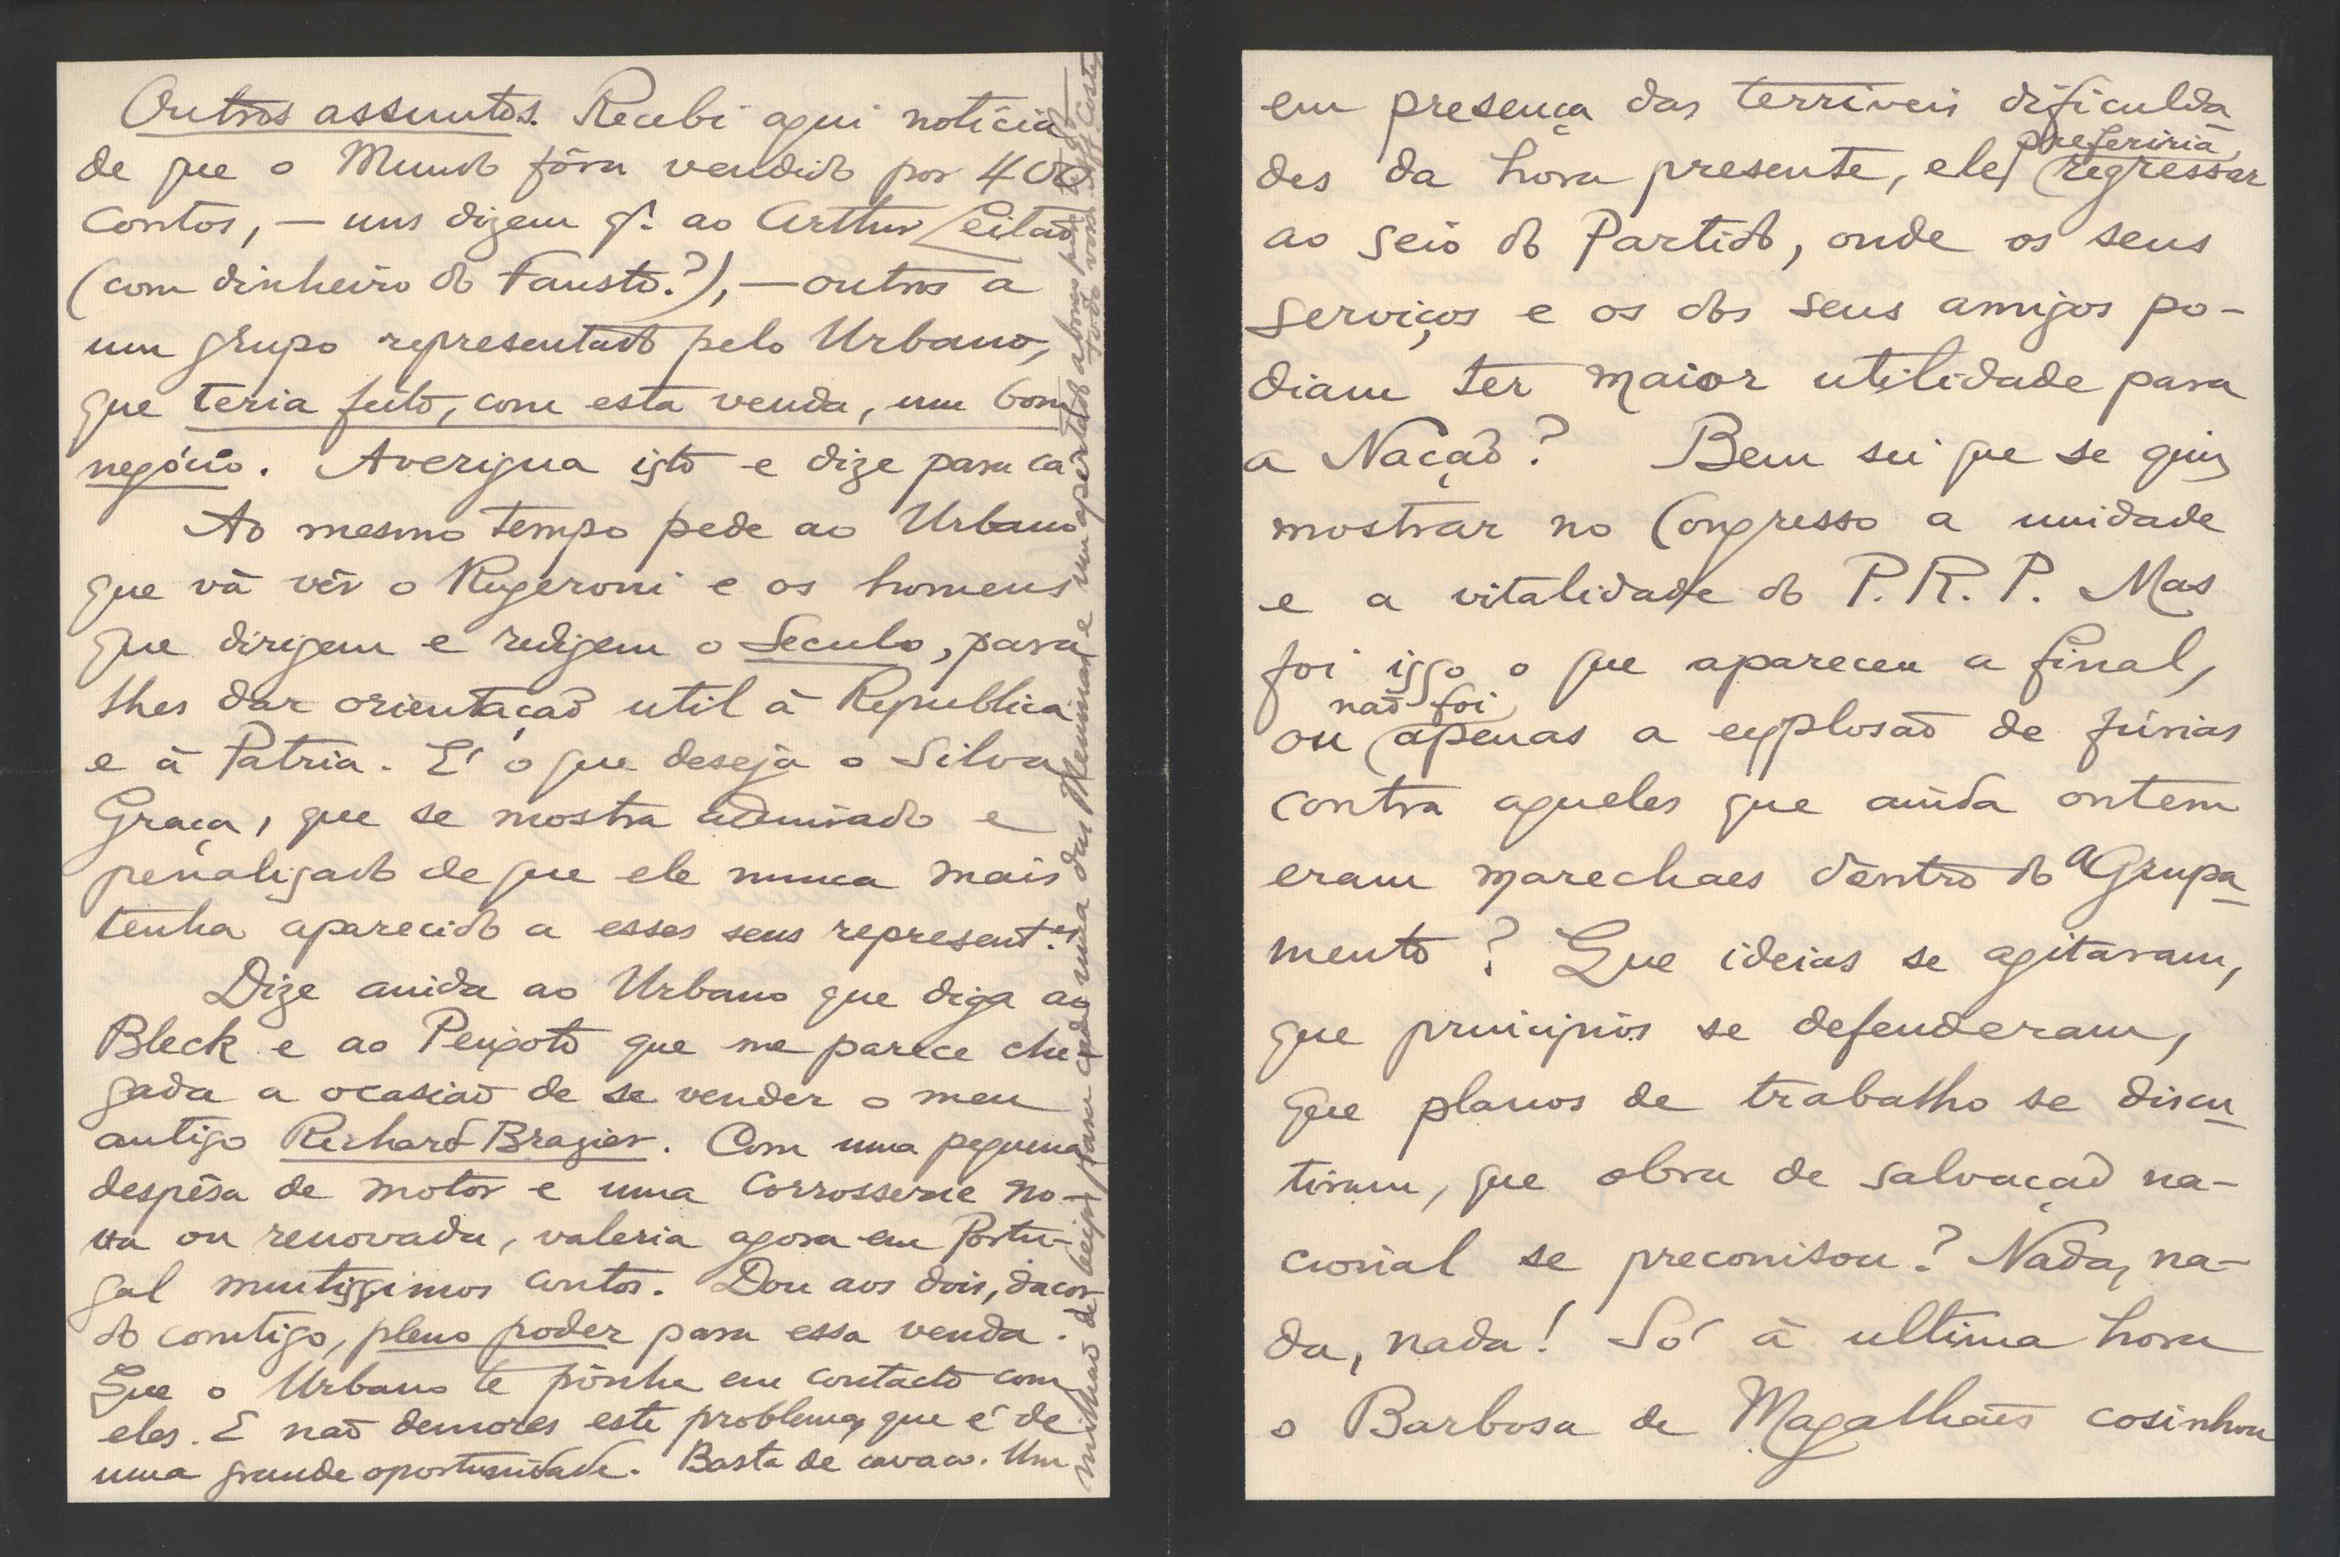 Outros assuntos. Recebi aqui notícia
de que o Mundo fôra vendido por 400
contos, — uns dizem q. ao Arthur Leitão
(com dinheiro do Fausto?), — outros a
um grupo representado pelo Urbano,
que teria feito, com esta venda, um bom
negócio. Averigua isto e dize para cá
Ao mesmo tempo pede ao Urbano
que vá vêr o Rugeroni e os homens
que dirigem e redigem o Seculo, para
lhes dar orientação util á Republica
e á Patria. E' o que deseja o Silva
Graça, que se mostra admirado e
penalisado de que ele nunca mais
tenha aparecido a esses seus represent.es
Dize ainda ao Urbano que diga ao
Bleck e ao Peixoto que me parece che-
gada a ocasião de se vender o meu
antigo Richard Brazier. Com uma pequena
despêsa de motor e uma corrosserie no-
va ou renovada, valeria agora em Portu-
gal muitissimos contos. Dou aos dois, dacor-
do comtigo, pleno poder para essa venda.
Que o Urbano te pônha em contacto com
eles. E não demores este problema, que é de
uma grande oportunidade. Basta de cavaco. Um
milhão de beijos para cada uma das Meninas e um apertado abraço para
todo vosso Aff. Costa
em presença das terriveis dificulda
des da hora presente, ele preferiria regressar
ao seio do Partido, onde os seus
serviços e os dos seus amigos po-
diam ter maior utilidade para
a Nação? Bem sei que se quis
mostrar no Congresso a unidade
e a vitalidade do P. R. P. Mas
foi isso o que apareceu a final,
ou não foi apenas a explosão de fúrias
contra aqueles que ainda ontem
eram marechaes dentro do agrupa-
mento? Que ideias se agitaram,
que principios se defenderam,
que planos de trabalho se discu-
tiram, que obra de salvação na-
cional se preconisou? Nada, na-
da, nada! Só á ultima hora
o Barbosa de Magalhães cosinhou